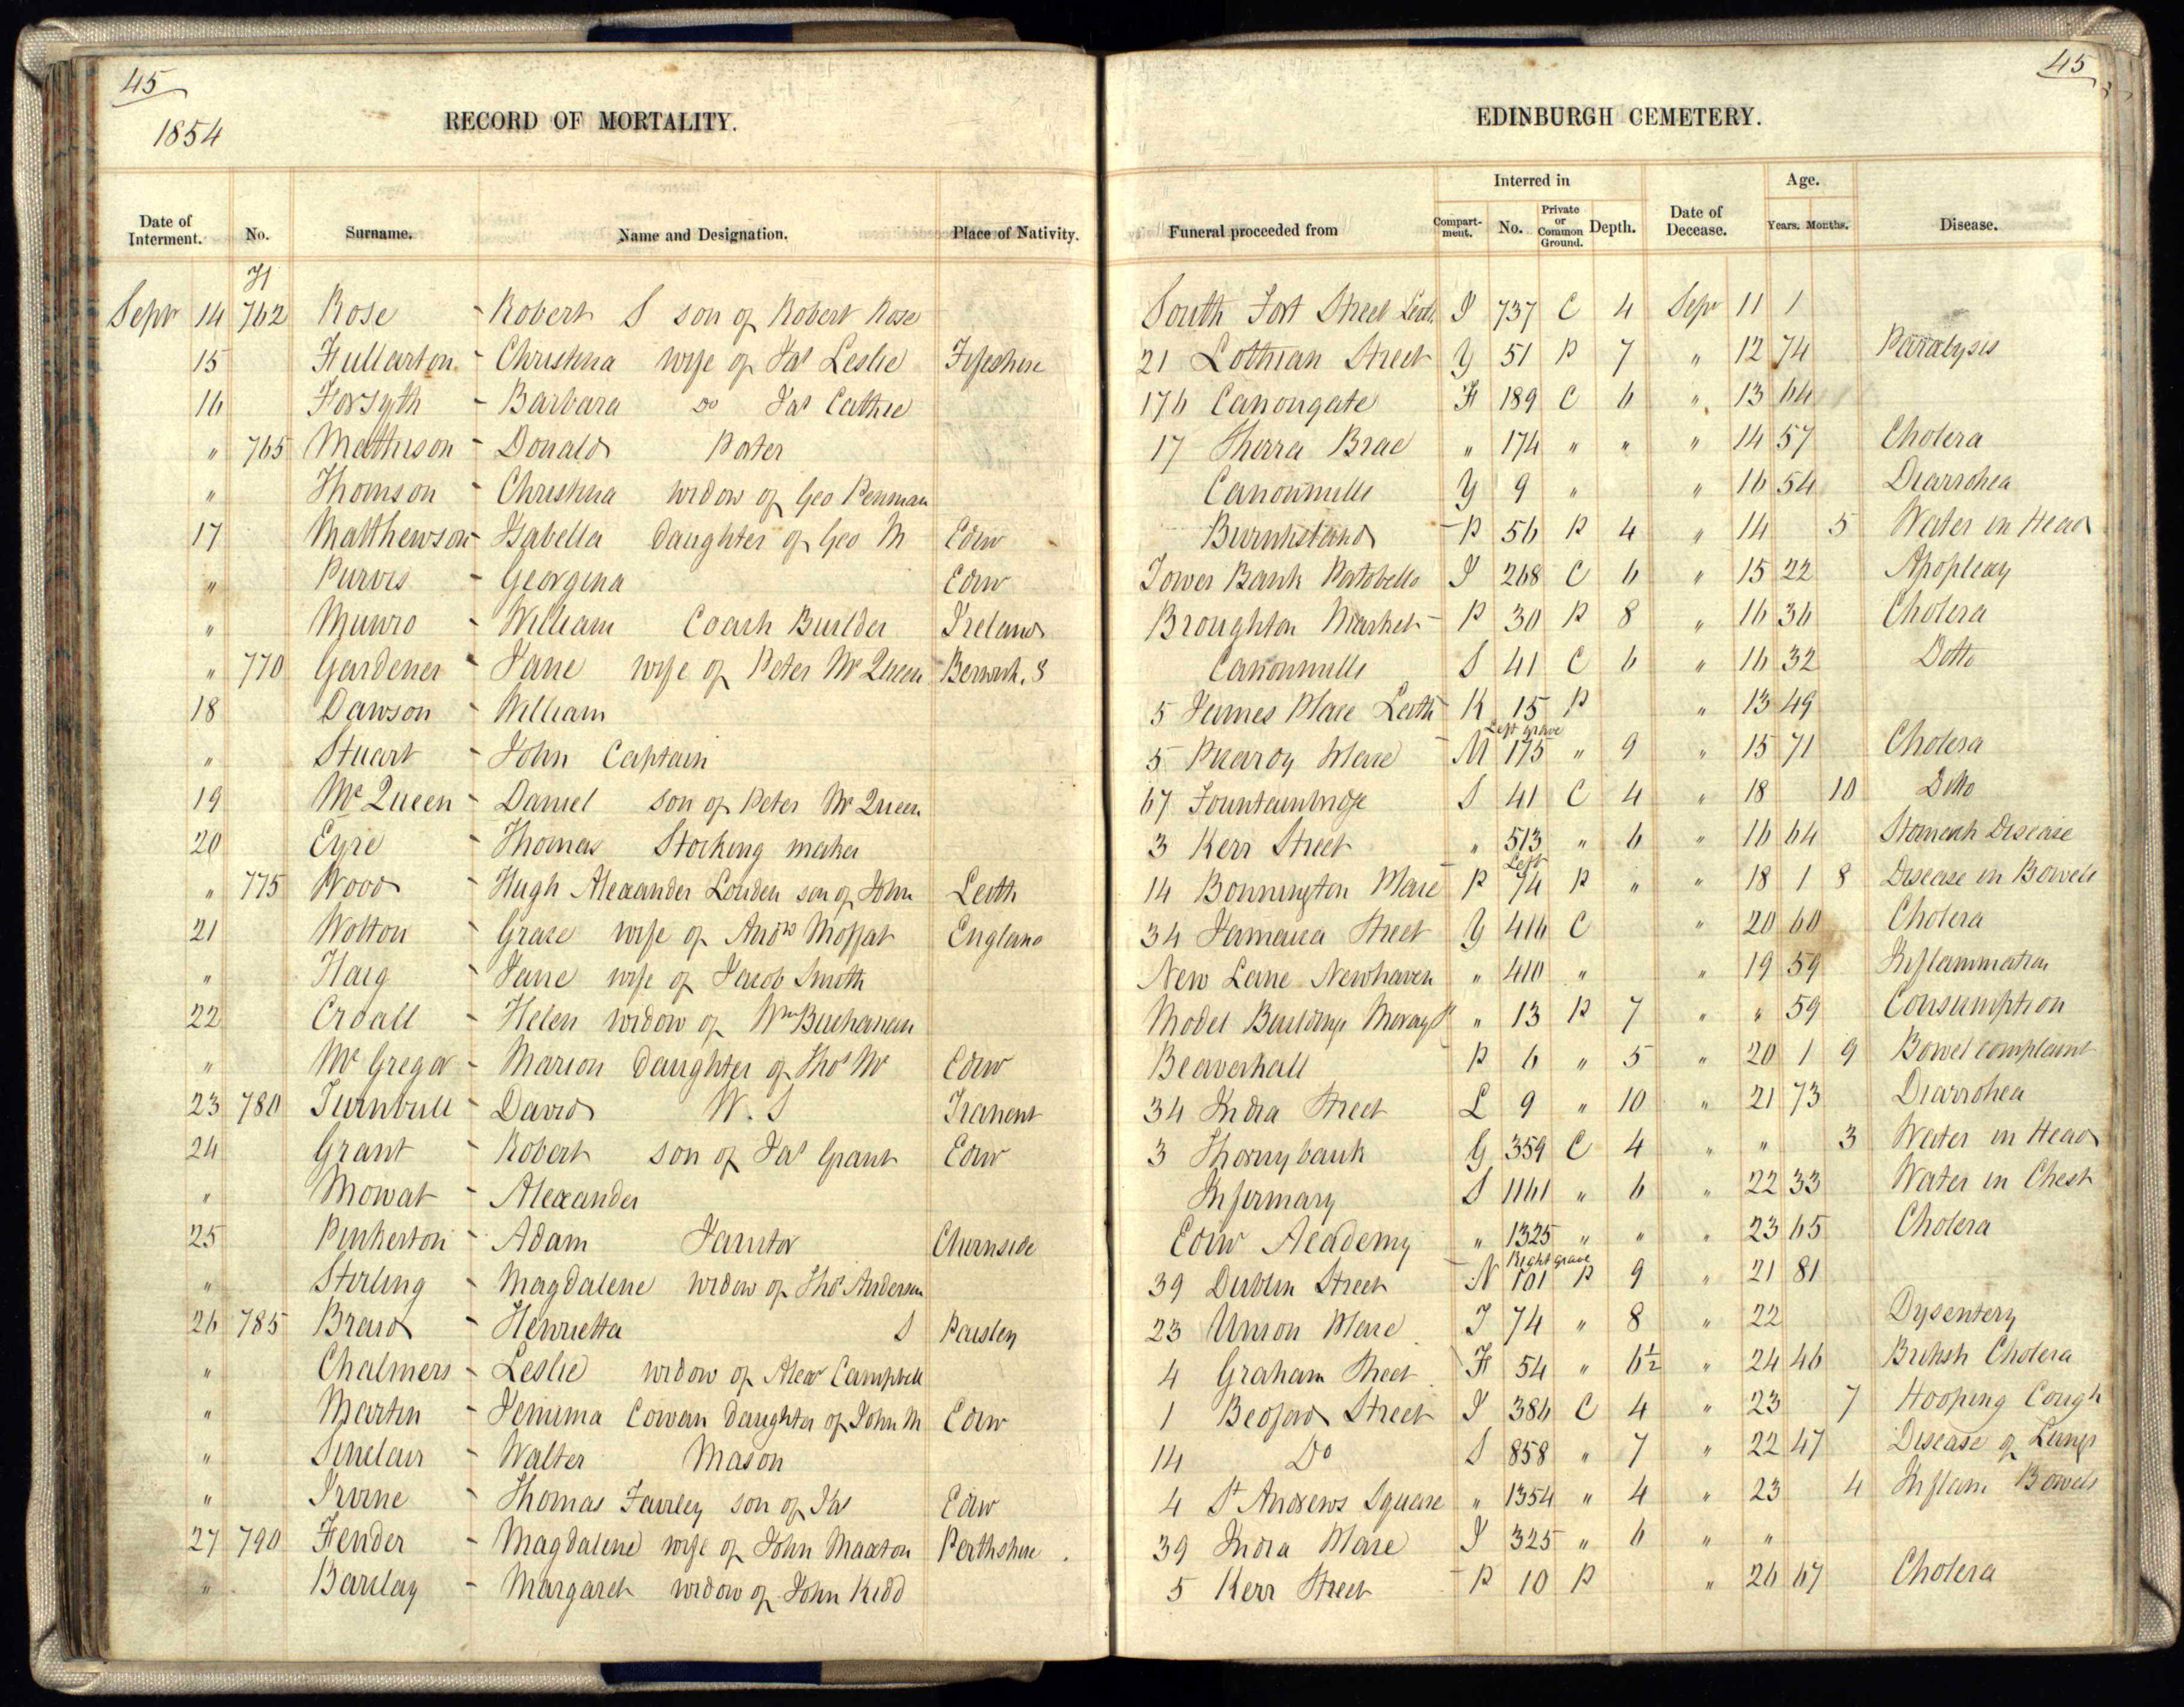 45
1854
RECORD OF MORTALITY.
Date of Interment. No. Surname. Name and Designation. Place of Nativity.
H
Sepr 14 762 Rose - Robert S son of Robert Rose
15 Fullarton - Christina wife of Jas Leslie Fifeshire
16 Forsyth - Barbara do Jas Cathie
" 765 Mathieson - Donald Porter
" Thomson - Christina widow of Geo Penman
17 Matthewson - Isabella daughter of Geo M Edinr
" Purves - Georgina Edinr
" Munro - William Coach Builder Ireland
" 770 Gardener - Jane wife of Peter McQueen Berwick. S
18 Dawson - William
" Stuart - John Captain
19 McQueen - Daniel son of Peter McQueen
20 Eyre - Thomas Stocking maker
" 775 Wood - Hugh Alexander Louden son of John Leith
21 Wotton - Grace wife of Andw Moffat England
" Haig - Jane wife of Jacob Smith
22 Croall - Helen widow of Wm Buchanan
" McGregor - Marion daughter of Thos Mc Edinr
23 780 Turnbull - David W. S Tranent
24 Grant - Robert son of Jas Grant Edinr
" Mowat - Alexander
25 Pinkerton - Adam Janitor Chirnside
" Stirling - Magdalene widow of Thos Anderson
26 785 Braid - Henrietta S Paisley
" Chalmers - Leslie widow of Alexr Campbell
" Martin - Jemima Cowan daughter of John M Edinr
" Sinclair - Walter Mason
" Irvine - Thomas Fairley son of Jas Edinr
27 790 Fender - Magdalene wife of John Maxton Perthshire
" Barclay - Margaret widow of John Kidd
45
EDINBURGH CEMETERY.
Interred in Age.
Funeral proceeded from Compart-ment. No. Private or Common Ground. Depth. Date of Decease. Years. Months. Disease.
South Fort Street Leith I 737 C 4 Sepr 11 1
21 Lothian Street Y 51 P 7 " 12 74 Paralysis
176 Canongate H 189 C 6 " 13 64
17 Brae " 174 " " " 14 57 Cholera
Canonmills Y 9 " " 16 54 Diarrohea
Burntisland P 56 P 4 " 14 5 Water in Head
Tower Bank Portobello I 268 C 6 " 15 22 Apoplexy
Broughton Market P 30 P 8 " 16 36 Cholera
Canonmills S 41 C 6 " 16 32 Ditto
5 James Place Leith K 15 P " 13 49
Left grave
5 Picardy Place M 175 " 9 " 15 71 Cholera
67 Fountainbridge S 41 C 4 " 18 10 Ditto
3 Kerr Street " 513 " 6 " 16 64 Stomach Disease
Left
14 Bonnington Place P 74 P " " 18 1 8 Disease in Bowels
34 Jamaica Street Y 416 C " 20 60 Cholera
New Lane Newhaven " 410 " " 19 59 Inflammation
Model Buildings Moray St " 13 P 7 " " 59 Consumption
Beaverhall P 6 " 5 " 20 1 9 Bowel complaint
34 India Street L 9 " 10 " 21 73 Diarrohea
3 Thornybank G 359 C 4 " " 3 Water in Head
Infirmary S 1161 " 6 " 22 33 Water in Chest
Edinr Academy " 1325 " " " 23 65 Cholera
Right grave
39 Dublin Street N 101 P 9 " 21 81
23 Union Place I 74 " 8 " 22 Dysentery
4 Graham Street H 54 " 6½ " 24 46 British Cholera
1 Bedford Street I 386 C 4 " 23 7 Hooping Cough
14 Do S 858 " 7 " 22 47 Disease of Lungs
4 St Andrews Square " 1354 " 4 " 23 4 Inflam Bowels
39 India Place I 325 " 6 " "
5 Kerr Street P 10 P " 26 67 Cholera